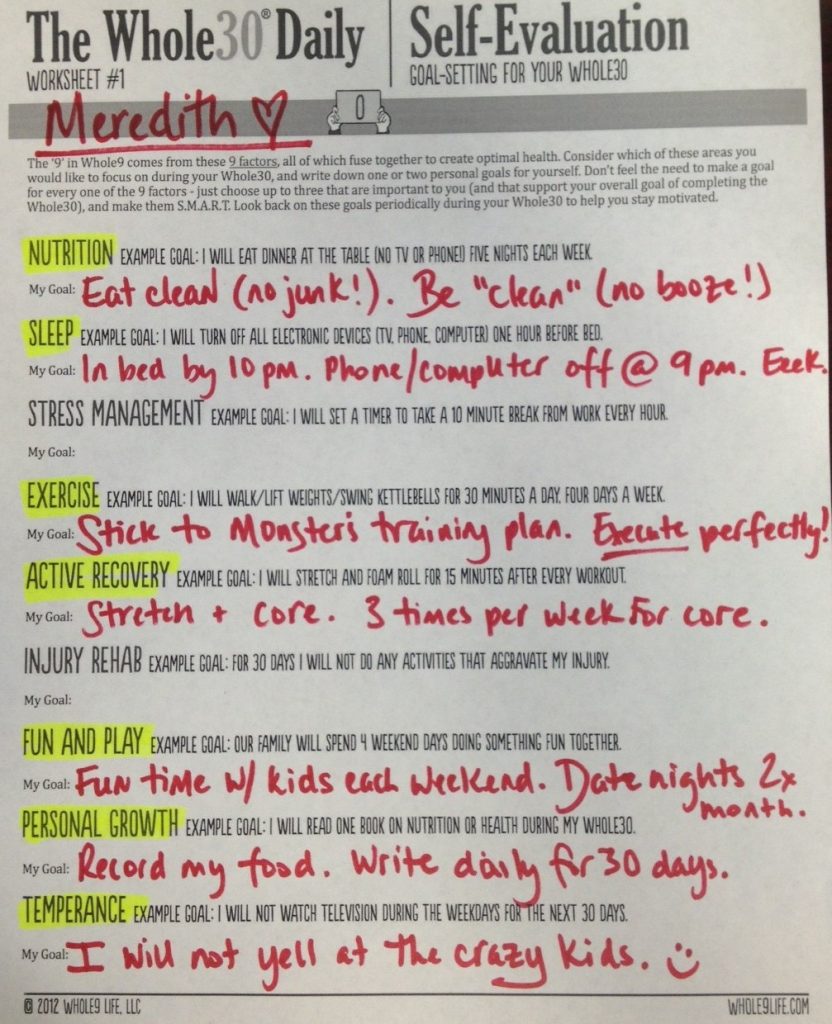 The Whole30® Daily
Self-Evaluation
WORKSHEET #1
GOAL-SETTING FOR YOUR WHOLE30
Meredith ♡
0
The '9' in Whole9 comes from these 9 factors, all of which fuse together to create optimal health. Consider which of these areas you
would like to focus on during your Whole30, and write down one or two personal goals for yourself. Don't feel the need to make a goal
for every one of the 9 factors - just choose up to three that are important to you (and that support your overall goal of completing the
Whole30), and make them S.M.A.R.T. Look back on these goals periodically during your Whole30 to help you stay motivated.
NUTRITION EXAMPLE GOAL: I WILL EAT DINNER AT THE TABLE (NO TV OR PHONE!) FIVE NIGHTS EACH WEEK.
My Goal: Eat clean (no junk!). Be "clean" (no booze!)
SLEEP EXAMPLE GOAL: I WILL TURN OFF ALL ELECTRONIC DEVICES (TV, PHONE, COMPUTER) ONE HOUR BEFORE BED.
My Goal: In bed by 10 pm. Phone/computer off @ 9 pm. Eeek.
STRESS MANAGEMENT EXAMPLE GOAL: I WILL SET A TIMER TO TAKE A 10 MINUTE BREAK FROM WORK EVERY HOUR.
My Goal:
EXERCISE EXAMPLE GOAL: I WILL WALK/LIFT WEIGHTS/SWING KETTLEBELLS FOR 30 MINUTES A DAY, FOUR DAYS A WEEK.
My Goal: Stick to Monster's training plan. Execute perfectly!
ACTIVE RECOVERY EXAMPLE GOAL: I WILL STRETCH AND FOAM ROLL FOR 15 MINUTES AFTER EVERY WORKOUT.
My Goal: Stretch + core. 3 times per week for core.
INJURY REHAB EXAMPLE GOAL: FOR 30 DAYS I WILL NOT DO ANY ACTIVITIES THAT AGGRAVATE MY INJURY.
My Goal:
FUN AND PLAY EXAMPLE GOAL: OUR FAMILY WILL SPEND 4 WEEKEND DAYS DOING SOMETHING FUN TOGETHER.
My Goal: Fun time w/ kids each weekend. Date nights 2x
month.
PERSONAL GROWTH EXAMPLE GOAL: I WILL READ ONE BOOK ON NUTRITION OR HEALTH DURING MY WHOLE30.
My Goal: Record my food. Write daily for 30 days.
TEMPERANCE EXAMPLE GOAL: I WILL NOT WATCH TELEVISION DURING THE WEEKDAYS FOR THE NEXT 30 DAYS.
My Goal: I will not yell at the crazy kids. :)
© 2012 WHOLE9 LIFE, LLC
WHOLE9LIFE.COM